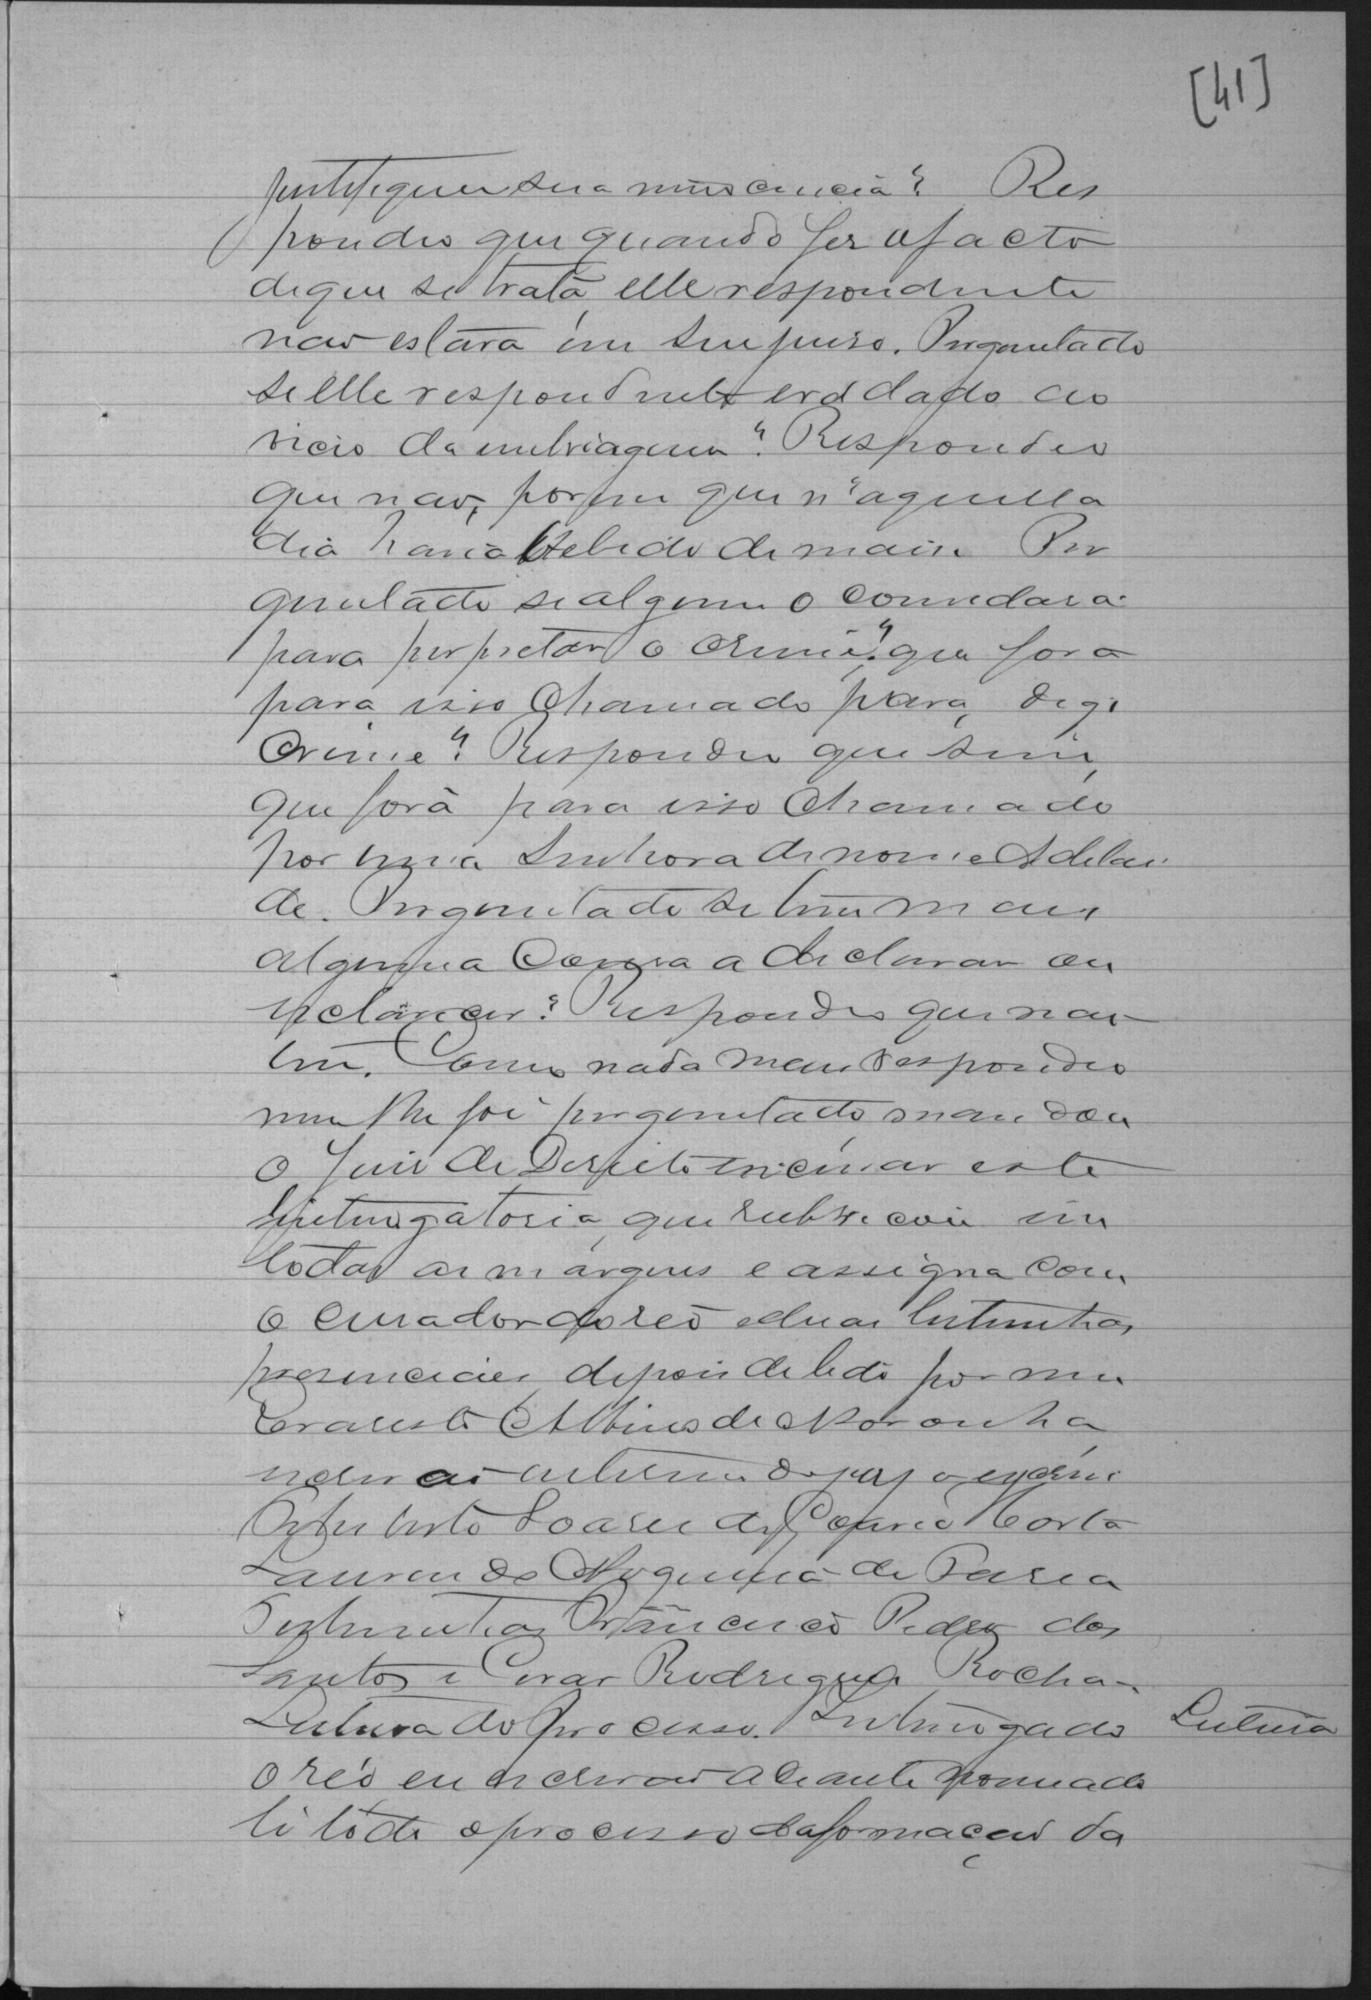 [41]
justifiquem sua innocencia? Res
pondeo que quando fez o facto
de que se trata, elle respondente
nao estava em seu juizo. Perguntado
se elle respondente era dado ao
vicio da embriaguem? Respondeo
que nao, porem que n'aquella
dia havia bebido de mais. Per
guntado se alguem o convidara
para perpretar o crime? que fora
para isso chamado para, digo
crime? Respondeu que sim,
que fora para isso chamado
por uma Senhora de nome Adelai
de. Perguntado se tem mais
alguma cousa a declarar ou
esclarecer? Respondeo que nao
tem. Como nada mais respondeo
nem lhe foi perguntado mandou
o Juis de Direito encerrar este
Interrogatorio, que rubricou em
todas as margens e assigna com
o curador do reo e duas testemunhas
presenciaes, depois de lido por mim
Evaristo Albino de Noronha
escrivao interino do jury o escrevi
Soares de Costa
Nogueira de Faria
Testemunhas Francisco Pedro dos
Santos e Cezar Rodrigues Rocha.
Leitura do processo. Interrogado Leitura
o reo eu escrivao adeante nomeado
li todo o processo da formaçao da